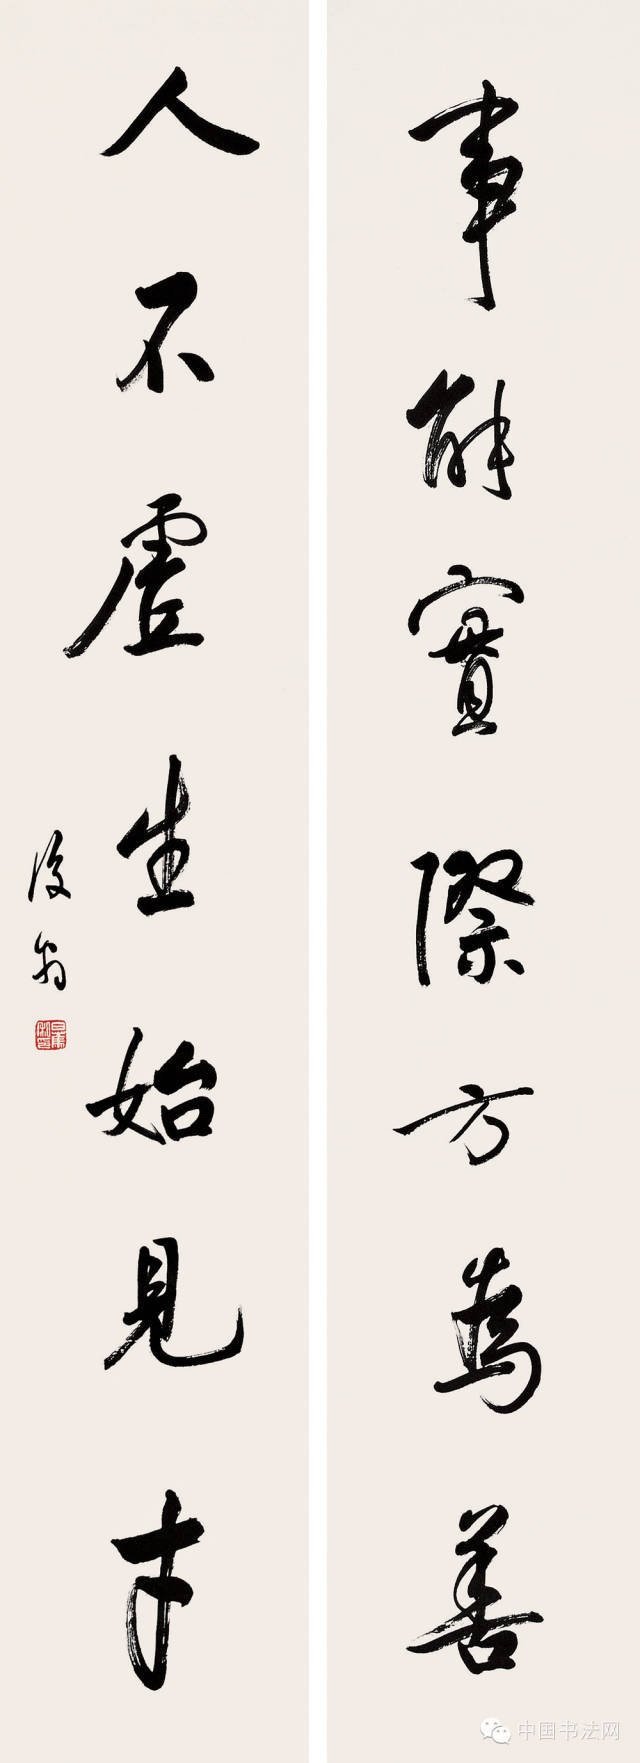 事能實際方為善
人不虛生始見才
後翁
中国书法网